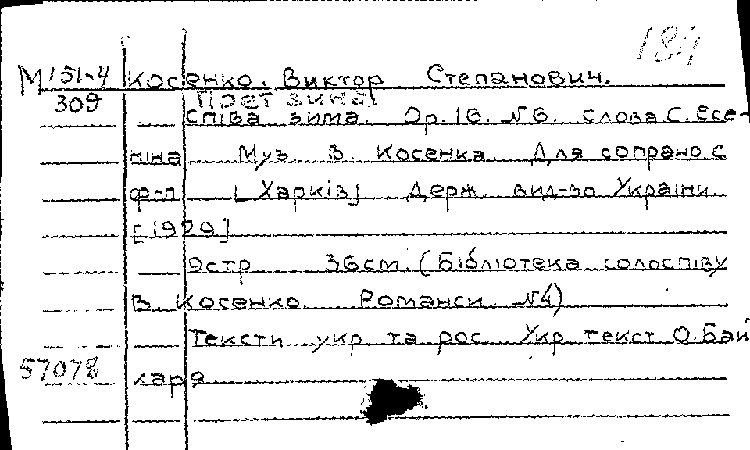 184
М 151-4 Косенко, Виктор Степанович.
309 Поет зима
Співа зима. Ор. 16. №6. Слова С. Есе-
ніна Муз. В. Косенка. Для сопрано с
ф-п [Харків] Держ. вид-во України
[1929]
9стр 36см. (Бібліотека солоспіву
В. Косенко Романси №4)
Тексти укр та рос Укр текст О. Бай
57078 каря